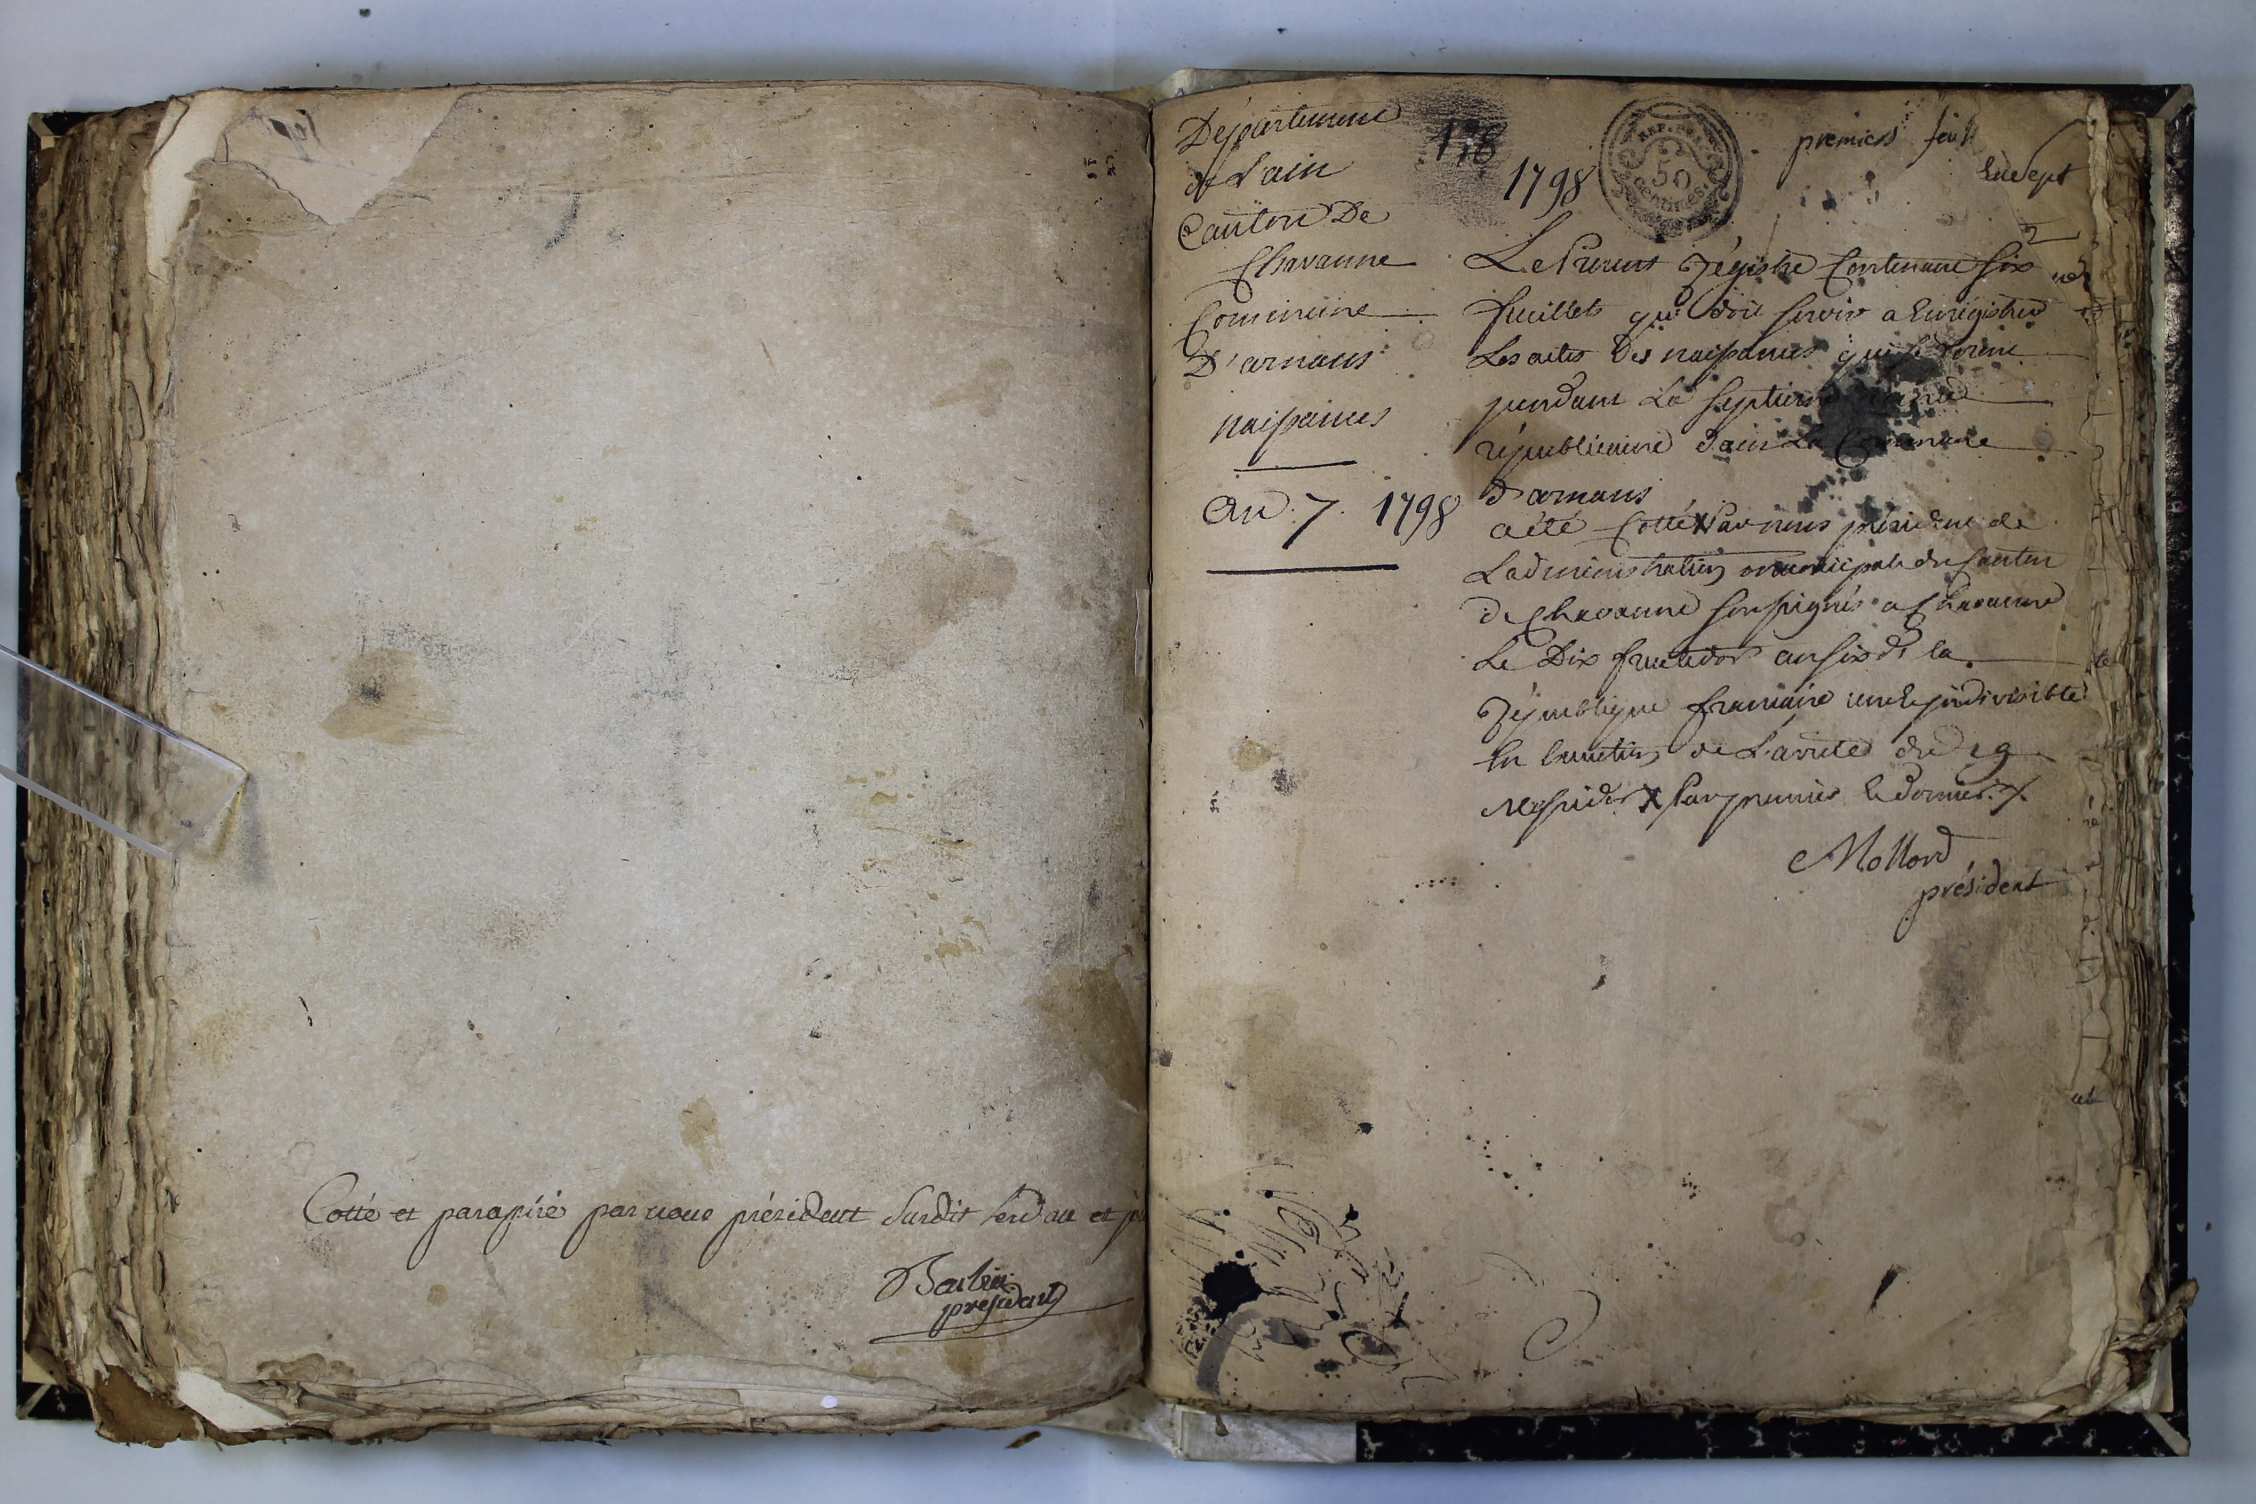 Cotté et parapiré par nous président Susdit lesd an et
Barbier
président
Département
de Lain
Canton De
Chavanne
Commune
D'arnans
naissances
An 7 1798
178
1798
REP. FRA.
50
centimes
premiers feuil
Le Present Régistre Contenant Six
feuillets qui doit servir a Enrégistrer
Les actes Des naissances qui se feront
pendant La septieme année
républicaine dans La Commune
d'arnans
a été Cotté X Par nous président de
Ladministration municipale du Canton
de Chavanne soussigné a Chavanne
Le Dix fructidor an six de la
République francaise une & indivisible
En Execution de L'arreté du 29
Messidor X Par premier & dernier
Mollard
président